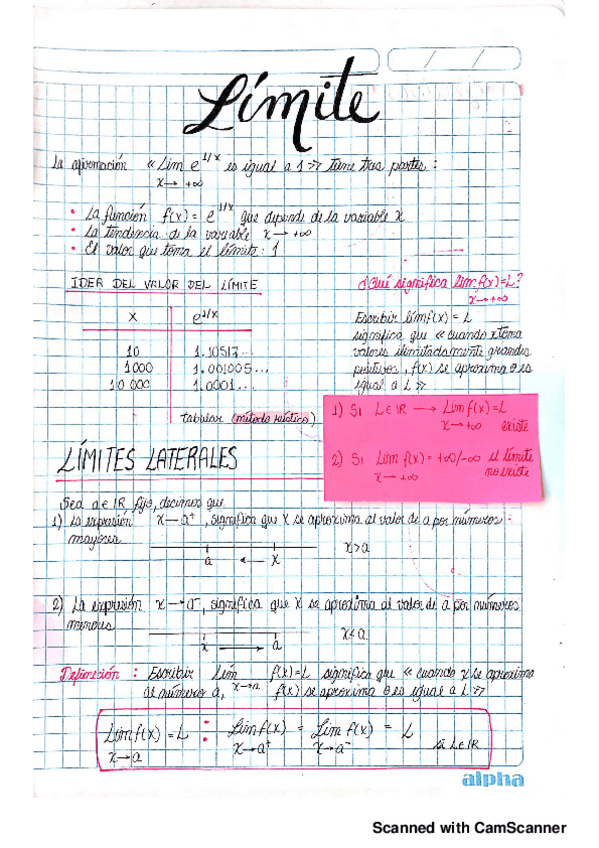 Límite
La afirmación « Lim e^1/x es igual a 1 » tiene tres partes :
x→ +∞
• La función f(x) = e^1/x que depende de la variable x
• La tendencia de la variable x → +∞
• El valor que toma el límite : 1
IDEA DEL VALOR DEL LÍMITE
x e^1/x
10 1.10517...
1000 1.001005...
10 000 1.0001...
tabular (método heurístico)
¿Qué significa lim f(x)=L?
x→+∞
Escribir lim f(x) = L
significa que « cuando x toma
valores ilimitadamente grandes
positivos, f(x) se aproxima o es
igual a L »
1) Si L∈IR → Lim f(x)=L
x→+∞ existe
2) Si Lim f(x) = +∞/-∞ el límite
x→ +∞ no existe
LÍMITES LATERALES
Sea a∈IR fijo, decimos que
1) La expresión x→a⁺, significa que x se aproxima al valor de a por números :
mayores x>a
a ← x
2) La expresión x→a⁻, significa que x se aproxima al valor de a por números
menores x<a
x → a
Definición : Escribir Lím f(x)=L significa que « cuando x se aproxima
al número a, x→a f(x) se aproxima o es igual a L »
Lim f(x) = L : Lim f(x) = Lim f(x) = L
x→a x→a⁺ x→a⁻ si L∈IR
alpha
Scanned with CamScanner